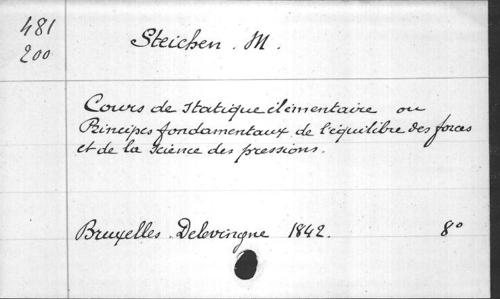 481
200
Steichen. M.
Cours de statique élémentaire ou
Principes fondamentaux de l'équilibre des forces
et de la science des pressions.
Bruxelles. Delevingne 1842. 8°